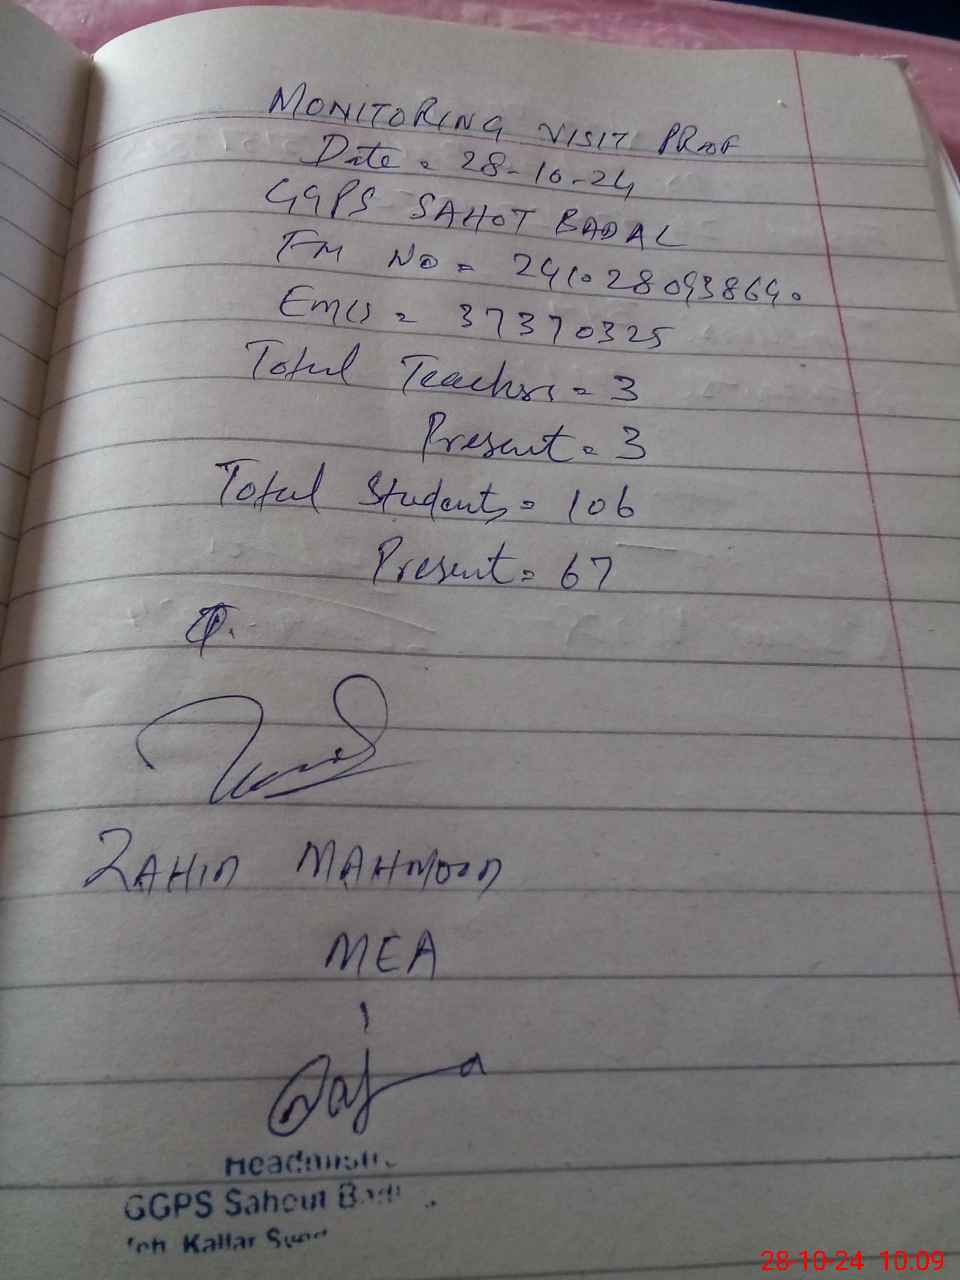 MONITORING VISIT PROOF
Date = 28-10-24
GGPS SAHOT BADAL
EMIS = 37370325
Total Teachers = 3
Present = 3
Total Students = 106
Present = 67
ZAHID MAHMOOD
MEA
GGPS Sahout
Kallar
28-10-24 10.09